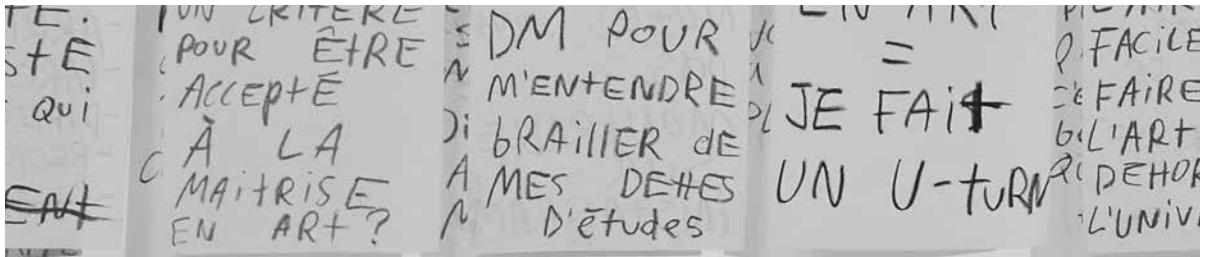 TE.
STE
QUI
ENT
UN CRITÈRE
POUR ÊTRE
ACCEPTÉ
À LA
MAITRISE
EN ART?
DM POUR
M'ENTENDRE
BRAILLER dE
MES DETTES
D'études
EN ART
=
JE FAIt
UN U-tURN
FACILE
FAIRE
L'ART
DEHOR
L'UNIV